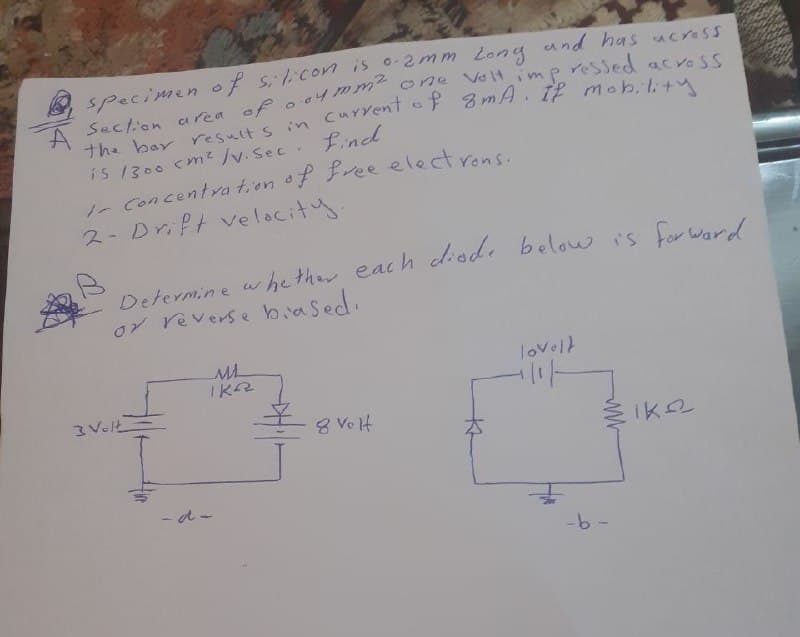 Q specimen of silicon is 0.2mm Long and has across
A Section area of 0.04 mm² one Volt impressed across
the bar results in current of 8mA. If mobility
is 1300 cm² /v.Sec. find
1- Concentration of free electrons.
2- Drift velocity.
B Determine whether each diode below is forward
or reverse biased.
1KΩ
3 Volt
8 Volt
-a-
10Volt
1KΩ
-b-